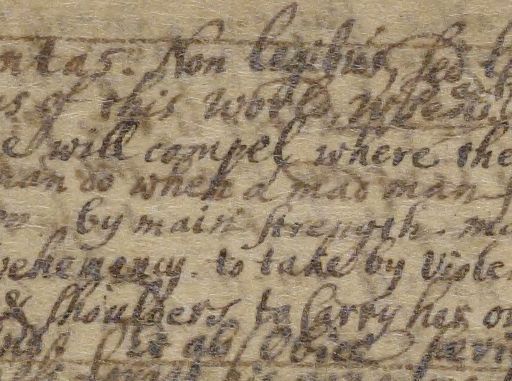 ntas. Non legibus, sed
of this world, where
e will compel, where the
man do when a mad man
by main strength. ma
vehemency. to take by viole
& shoulders, to carry her o